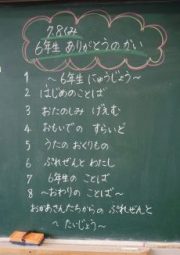 7.8くみ
6年生 ありがとうの かい
1 ～6年生 にゅうじょう～
2 はじめのことば
3 おたのしみ げえむ
4 おもいでの すらいど
5 うたの おくりもの
6 ぷれぜんと わたし
7 6年生の ことば
8 ～おわりの ことば～
おかあさんたちからの ぷれぜんと
～たいじょう～